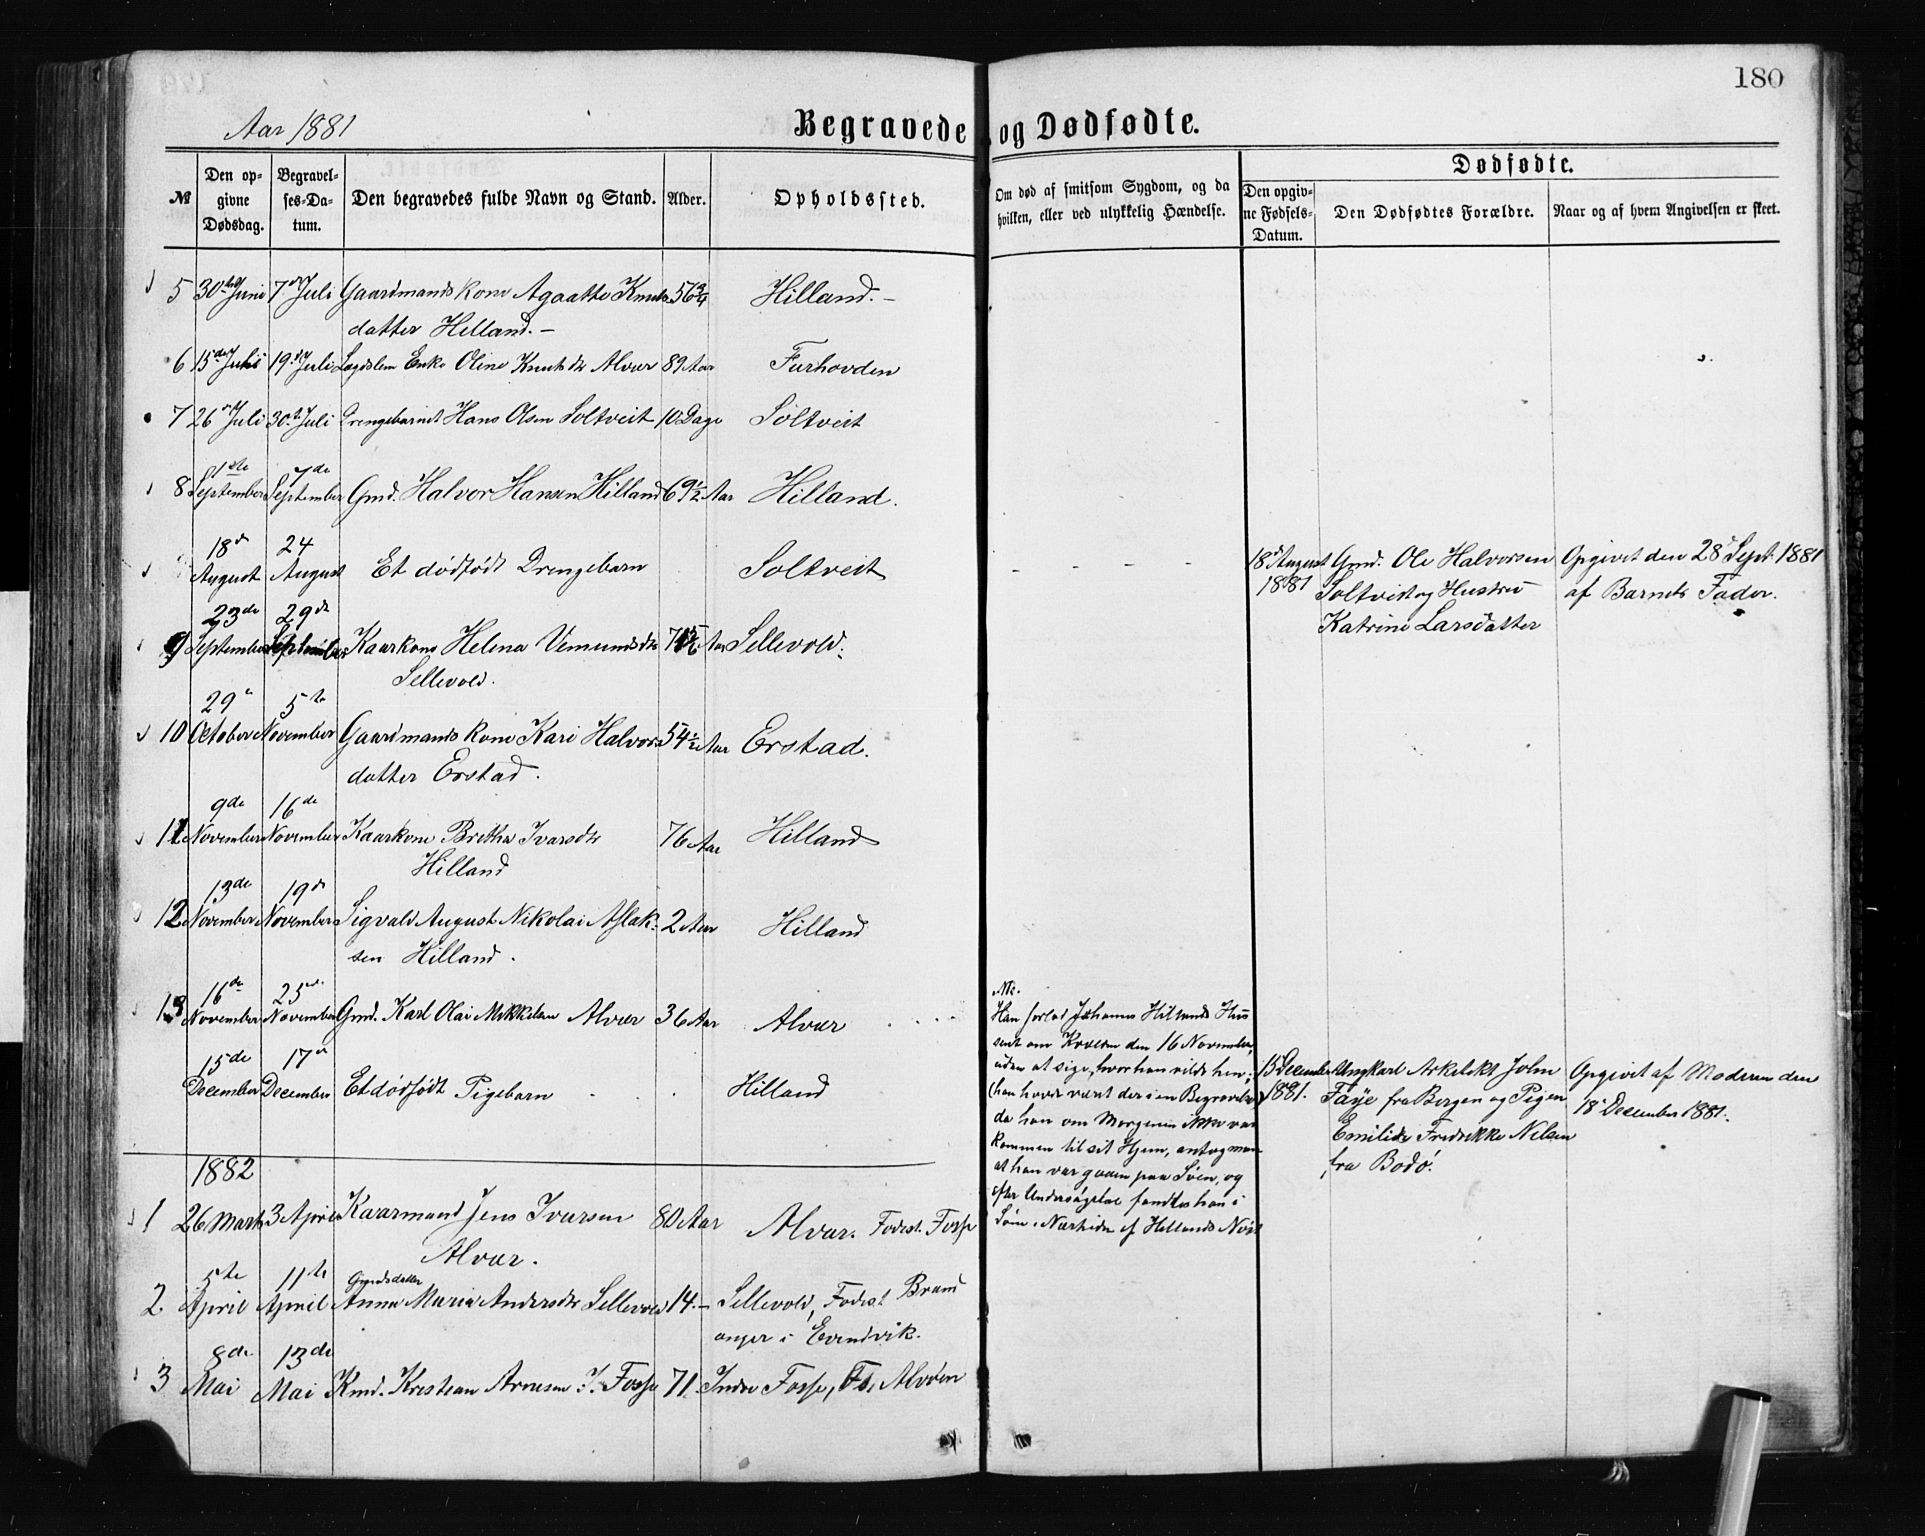 180
Aar 1881
Begravede og Dødfødte.
Dødfødte.
№
Den opgivne Dødsdag.
Begravelses-Datum.
Den begravedes fulde Navn og Stand.
Alder.
Opholdssted.
Om død af smitsom Sygdom, og da hvilken, eller ved ulykkelig Hændelse.
Den opgivne Fødsels-Datum.
Den Dødfødtes Forældre.
Naar og af hvem Angivelsen er skeet.
5 30te Juni 7de Juli Gaardmandskone Agaatte Knuts 56 3/4 Hilland.-
datter Hilland.-
6 15de Juli 19d Juli Lægdslem Enke Oline Knutsdtr Alvær 89 Aar Furhovden
7 26de Juli 30te Juli Drengebarnet Hans Olsen Soltveit 10 Dage Soltveit
1ste 7de
8 September September Gmd. Halvor Hansen Hilland 69 1/2 Aar Hilland.
18de 24
August August Et dødfødt Drengebarn Soltveit - - - - 18de August Gmd. Ole Halvorsen Opgivet den 28de Sept. 1881
1881 Soltveit og Hustru af Barnets Fader.
Katrine Larsdatter
23de 29de
9 September September Kaarkone Helena Vemundsdtr Aar Sellevold.
Sellevold.
29de 5te
10 October November Gaardmandskone Kari Halvors 54 1/2 Aar Erstad.
datter Erstad.
9de 16de
11 November November Kaarkone Britha Ivarsdtr 76 Aar Hilland
Hilland
13de 19de
12 November November Sigvald August Nikolai Aslak- 2 Aar Hilland
sen Hilland.
16de 25de
13 November November Gmd. Karl Olai Mikkelsen Alvær 36 Aar Alvær
Han forlod Johannes Hillands Hus
sent om Kvelden den 16 November,
uden at sige, hvor han vilde hen;
(han havde været der i en Begravelse)
da han om Morgenen ikke var
kommen til sit Hjem, antog man
at han var gaaen paa Søen, og
efter Undersøgelse fandtes han i
Søen i Nærheden af Hillands Nøst
15de 17de
December December Et dødfødt Pigebarn Hilland 15 December Ungkarl Arkitekt John Opgivet af Moderen den
1881. Faye fra Bergen og Pigen 18de December 1881.
Emilie Fredrikke Nilsen
fra Bodø.
1882
1 26 Marts 3 April Kaarmand Jens Ivarsen 80 Aar Alvær. Fødest. Fosse
Alvær.
5te 11te Gmdsdatter
2 April April Anna Maria Andersdtr Sellevold 14.- Sellevold, Fødest. Brand
anger i Evendvik.
8de 13de
3 Mai Mai Kmd. Kristian Arnesen I. Fosse 71. Indre Fosse, Fø. Alvøen